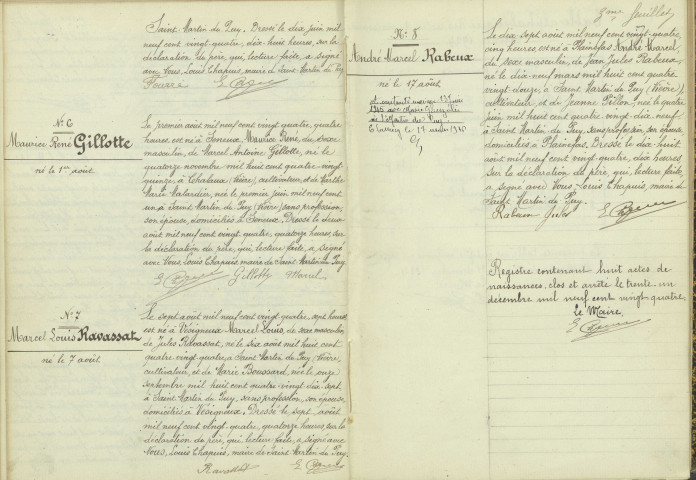 Saint-Martin du Puy. Dressé le dix juin mil
neuf cent vingt-quatre, dix-huit heures, sur la
déclaration du père, qui, lecture faite, a signé
avec Nous, Louis Chapuis, maire de Saint-Martin du Puy
N° 6
Maurice René Gillotte
né le 1er août
Le premier août mil neuf cent vingt quatre, quatre
heures, est né à Seneux Maurice René, du sexe
masculin, de Marcel Antoine Gillotte, né le
quatorze novembre mil huit cent quatre-vingt-
quinze, à Chalaux (Nièvre), cultivateur, et de Berthe
Marie Malardier, née le premier juin mil neuf cent
un à Saint Martin du Puy (Nièvre) sans profession,
son épouse, domiciliés à Seneux. Dressé le deux
août mil neuf cent vingt-quatre, quatorze heures, sur
la déclaration du père, qui, lecture faite, a signé
avec Nous Louis Chapuis, maire de Saint-Martin du Puy
Gillotte Marcel
N° 7
Marcel Louis Ravassat
né le 7 août
Le sept août mil neuf cent vingt quatre, sept heures
est né à Vésigneux Marcel Louis, de sexe masculin
de Jules Ravassat, né le dix août mil huit cent
quatre vingt-quatre, à Saint Martin du Puy (Nièvre),
cultivateur, et de Marie Boussard, née le onze
septembre mil huit cent quatre-vingt-dix-sept,
à Saint Martin du Puy, sans profession, son épouse,
domiciliés à Vésigneux. Dressé le sept août
mil neuf cent vingt-quatre, quatorze heures, sur la
déclaration du père, qui, lecture faite, a signé avec
Nous, Louis Chapuis, maire de Saint Martin du Puy.
Ravassat
N° 8
André Marcel Rabeux
né le 17 août
3me feuillet
Le dix sept août mil neuf cent vingt-quatre,
cinq heures, est né à Plainefas André Marcel,
de sexe masculin, de Jean Jules Rabeux,
né le dix-neuf mars mil huit cent quatre
vingt-douze, à Saint Martin du Puy (Nièvre),
cultivateur, et de Jeanne Pillon, née le quatre
juin mil huit cent quatre vingt-dix-neuf
à Saint-Martin du Puy, sans profession, son épouse
domiciliés à Plainefas. Dressé le dix huit
août mil neuf cent vingt-quatre, dix heures,
sur la déclaration du père, qui, lecture faite,
a signé avec Nous Louis Chapuis, maire de
Saint Martin du Puy.
Rabeux Jules
Registre contenant huit actes de
naissances, clos et arrêté le trente-un
décembre mil neuf cent vingt-quatre
Le Maire,